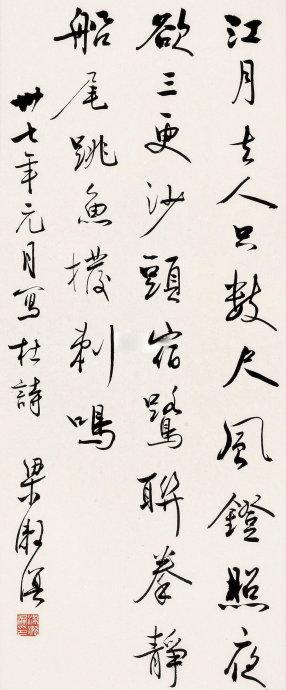 江月去人只數尺風鐙照夜
欲三更沙頭宿鷺聯拳靜
船尾跳魚撥剌鳴
卅七年元月寫杜詩
梁漱溟